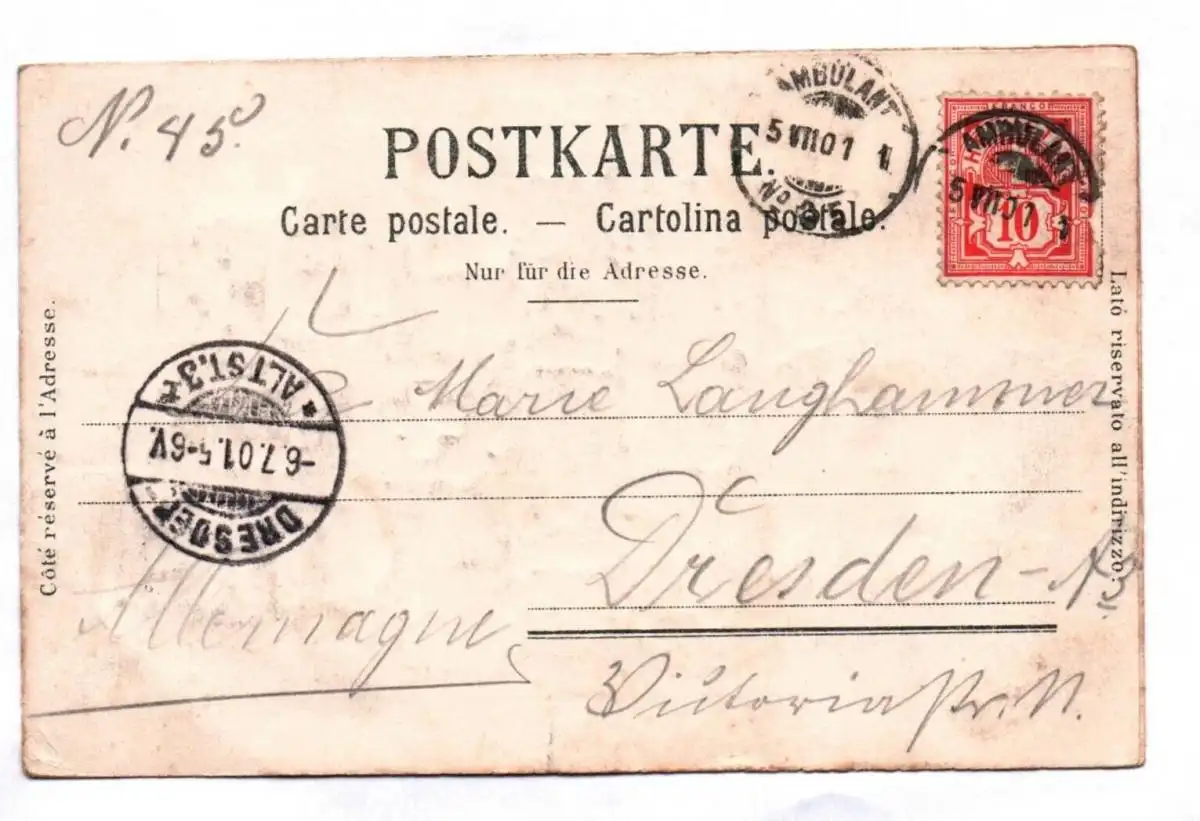 N. 45.
POSTKARTE.
Carte postale. — Cartolina postale.
Nur für die Adresse.
AMBULANT
5 VII 01 1
No
FRANCO
10
AMBULANT
5 VII 01 1
Côté réservé à l'Adresse.
Lató riservato all'indirizzo.
DRESDEN
-6.7.01.5-6V.
* ALTST. 3 *
Marie Langhammer
Dresden-
Allemagne
Victoriastr.